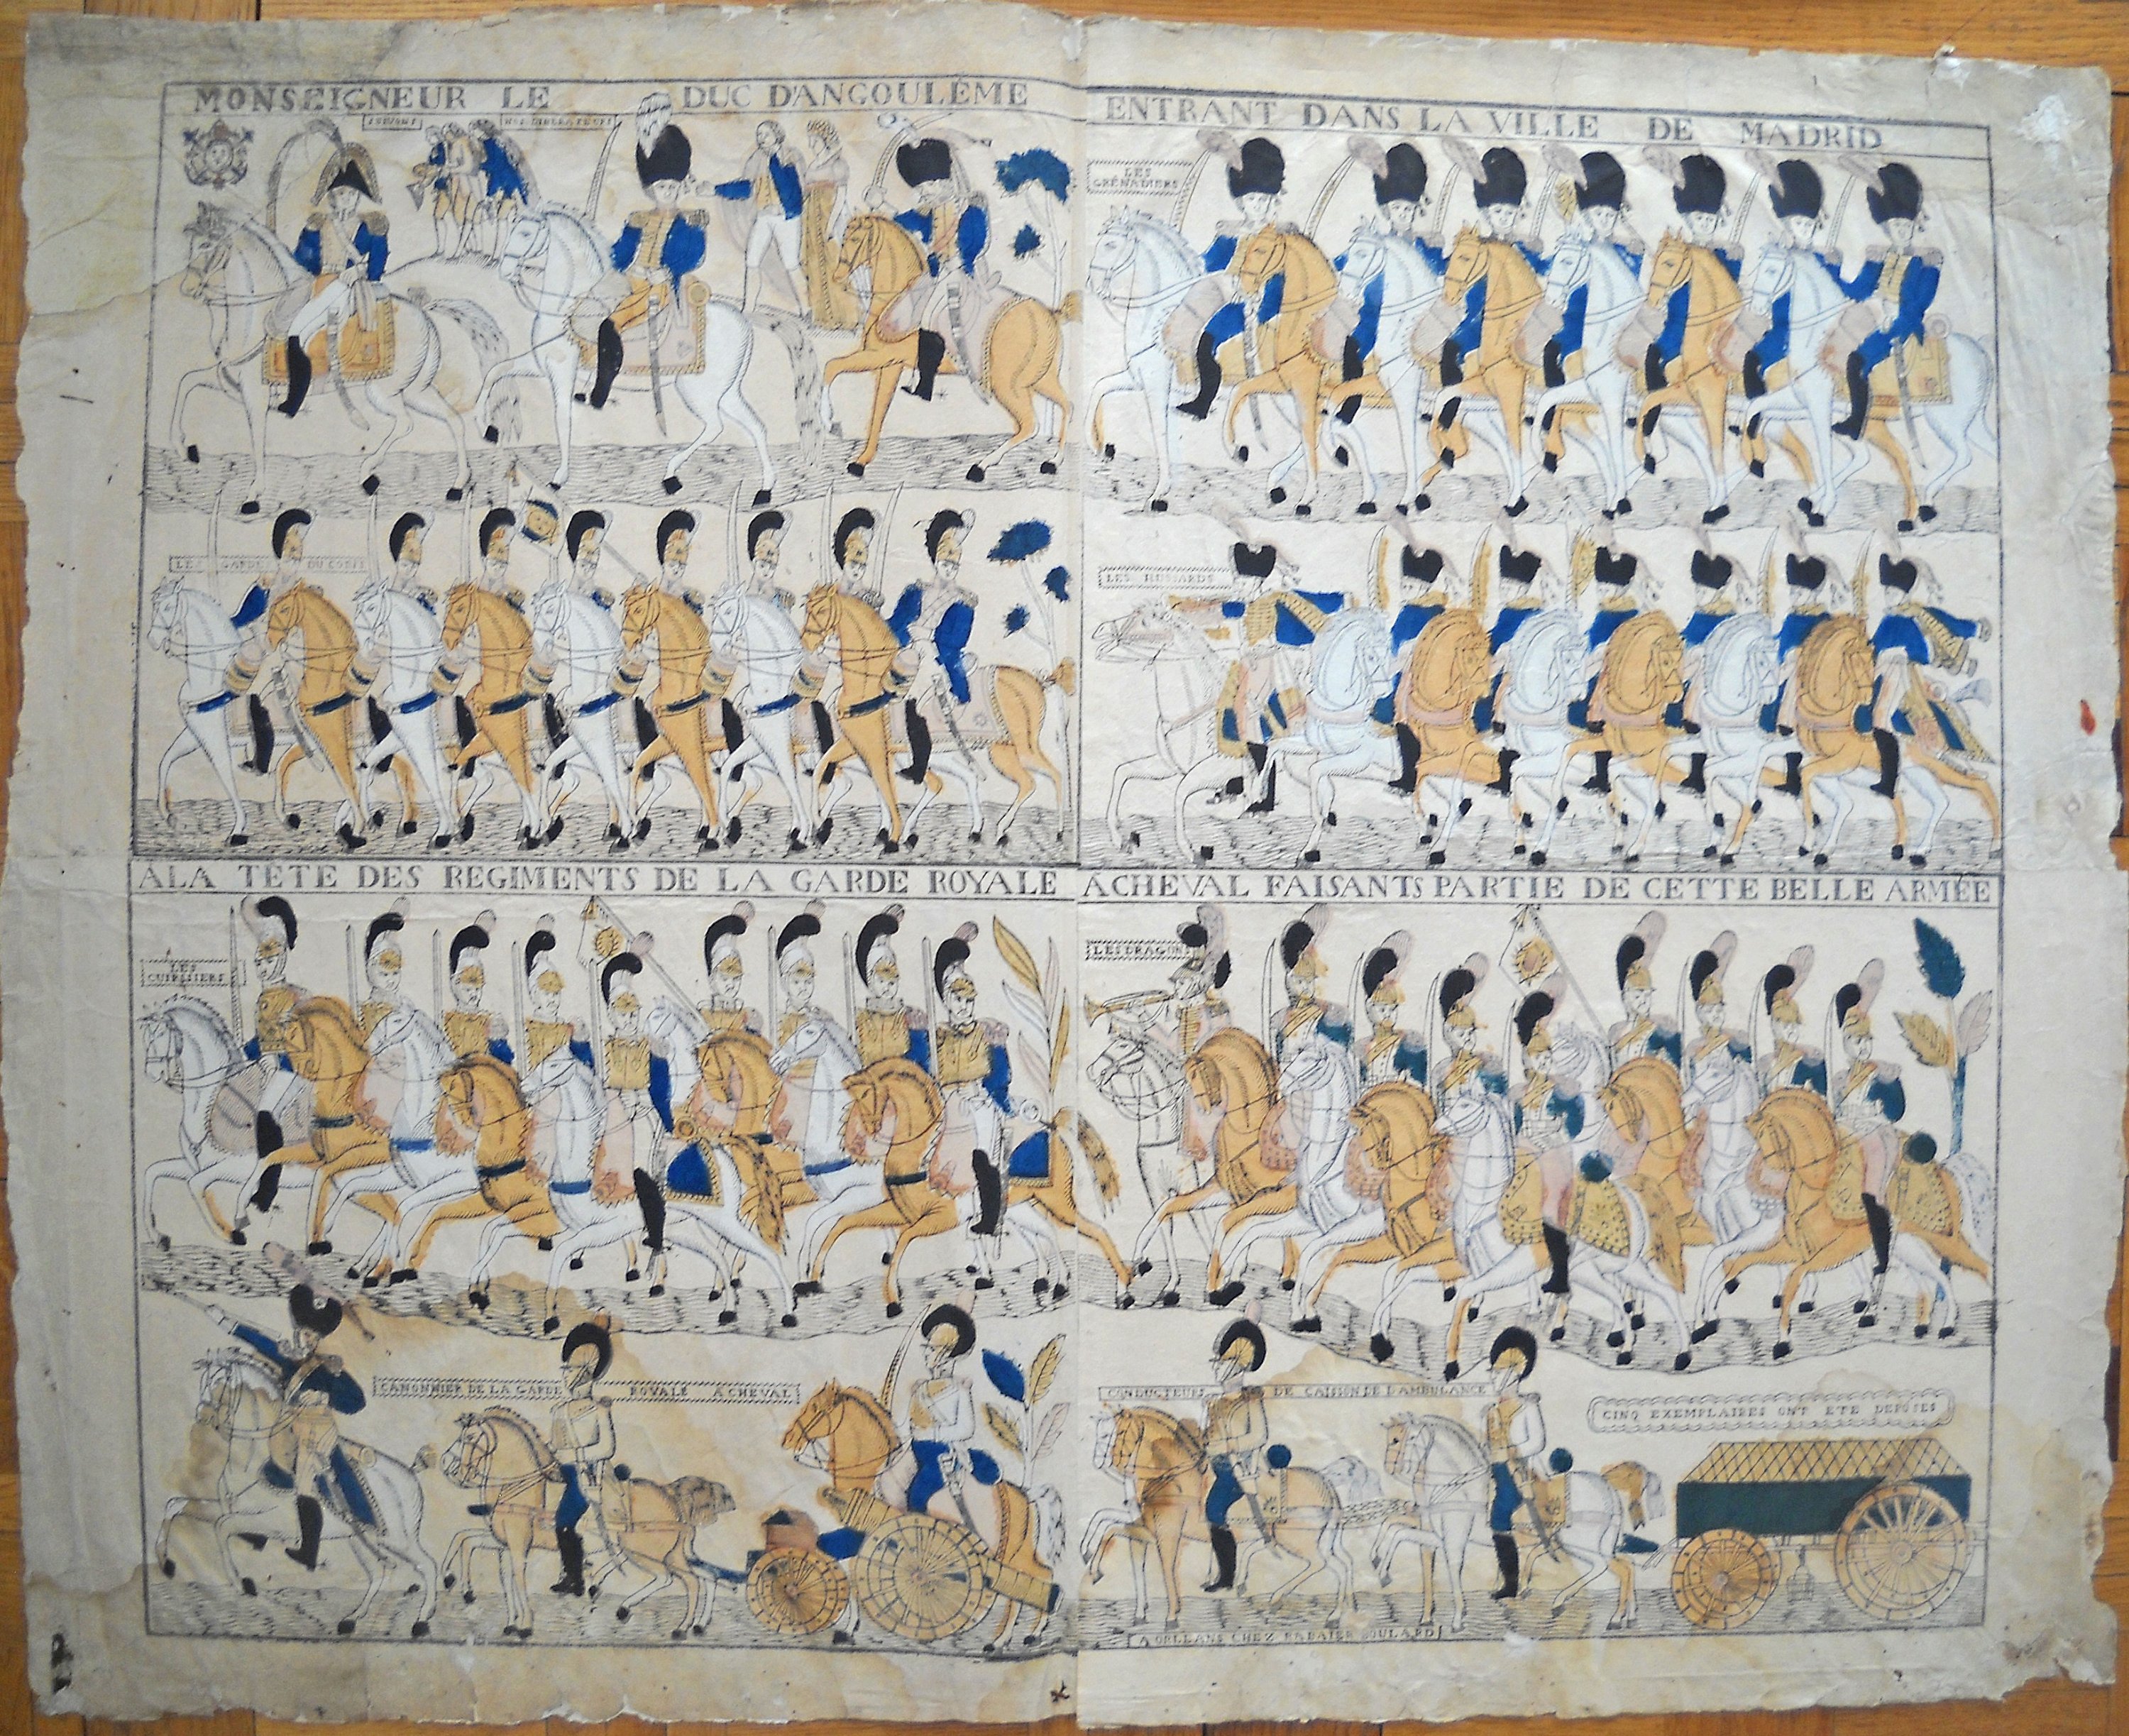 MONSEIGNEUR LE DUC D'ANGOULÊME ENTRANT DANS LA VILLE DE MADRID
LES GRÉNADIERS
LES GARDES DU CORPS
LES HUSSARDS
A LA TETE DES REGIMENTS DE LA GARDE ROYALE ÀCHEVAL FAISANTS PARTIE DE CETTE BELLE ARMÉE
LES CUIRSSIERS
LES DRAGONS
CANONNIER DE LA GARDE ROYALE A CHEVAL
CONDUCTEURS DE CAISSON DE L'AMBULANCE
CINQ EXEMPLAIRES ONT ETE DEPOSES
A ORLEANS CHEZ RABAIER BOULARD